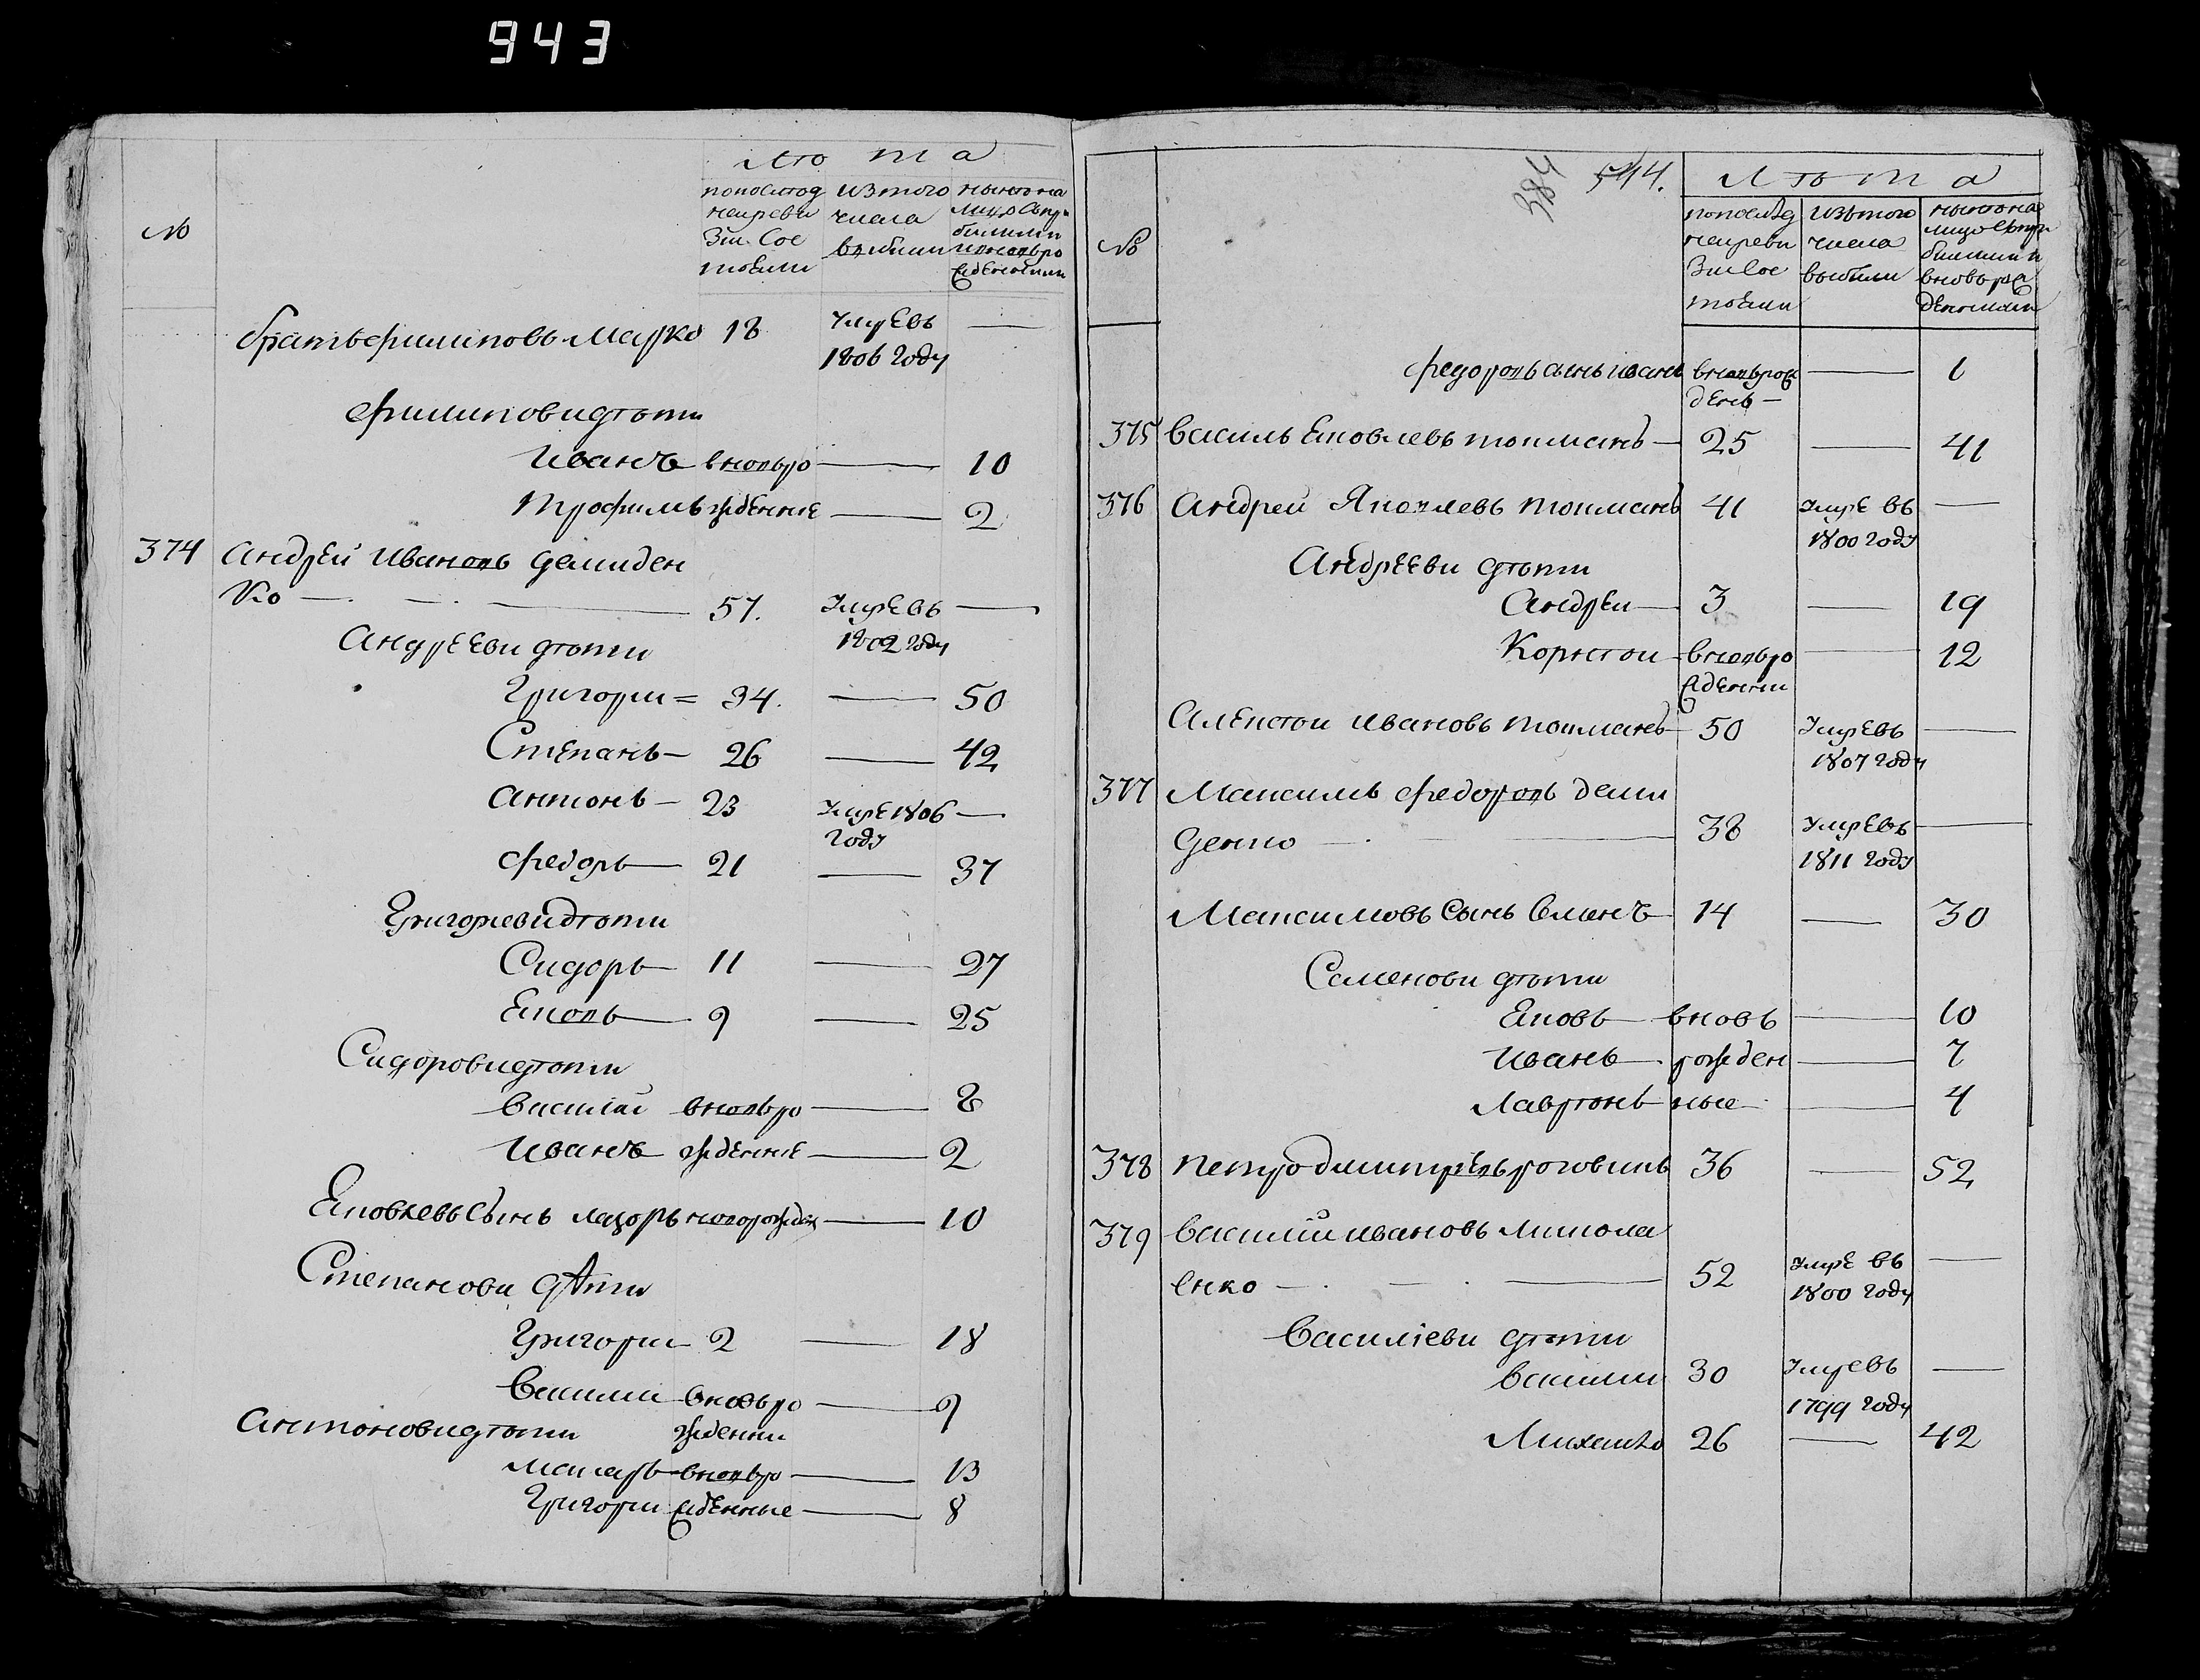 943
Лѣта
№
по послѣд
ней реви
зии сос
тояли
изъ того
числа
выбыли
нынѣ на
лицо съ при
былыми
и вновь ро
жденными
братъ филиповъ Марко 18 умре въ —
1806 году
филипови дѣти
Иванъ вновь ро — 10
трофимъ жденные — 2
374 андрей ивановъ демиден
ко — 57. умре въ —
1802 году
андрееви дѣти
Григори = 34. — 50
Степанъ — 26 — 42
антонъ — 23 умре 1806 —
году
федоръ — 21 — 37
Григориеви дѣти
Сидоръ — 11 — 27
Яковъ — 9 — 25
Сидорови дѣти
василий вновь ро — 8
иванъ жденные — 2
Яковлевъ сынъ лазоръ новорожден — 10
Степанови дѣти
Григори — 2 — 18
василии вновь ро — 9
антонови дѣти жденни
макаръ вновь ро — 13
Григори жденные — 8
384 544.
Лѣта
№
по послѣд
ней реви
зии сос
тояли
изъ того
числа
выбыли
нынѣ на
лицо съ при
былыми и
вновь рож
денными
федоровъ сынъ иванъ вновь рож — 1
денъ —
375 василь Яковлевъ тошманъ — 25 — 41
376 андрей Яковлевъ тошманъ 41 умре въ —
1800 году
Андрееви дѣти
андреи — 3 — 19
Корнѣи — вновь ро — 12
ждении
алексѣи ивановъ тошманъ — 50 умре въ —
1807 году
377 Максимъ федоровъ деми
денко — 38 умре въ —
1811 году
Максимовъ сынъ семенъ 14 — 30
Семенови дѣти
Яковъ — вновь — 10
иванъ — рожден — 7
лаврѣнъ ные — 4
378 петро дмитрѣевъ роговинъ 36 — 52
379 василий ивановъ микола
енко — 52 умре въ —
1800 году
василіеви дѣти
василии 30 умре въ —
1799 году
Михаило 26 — 42